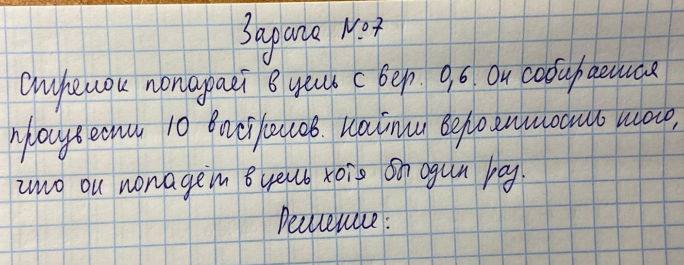 Задача №7
Стрелок попадает в цель с вер. 0,6. Он собирается
произвести 10 выстрелов. Найти вероятность того,
что он попадёт в цель хотя бы один раз.
Решение: